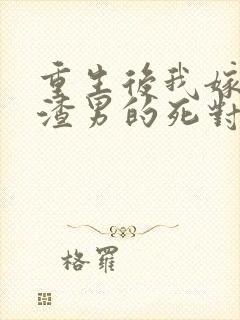 重生後我嫁
渣男的死對
格羅